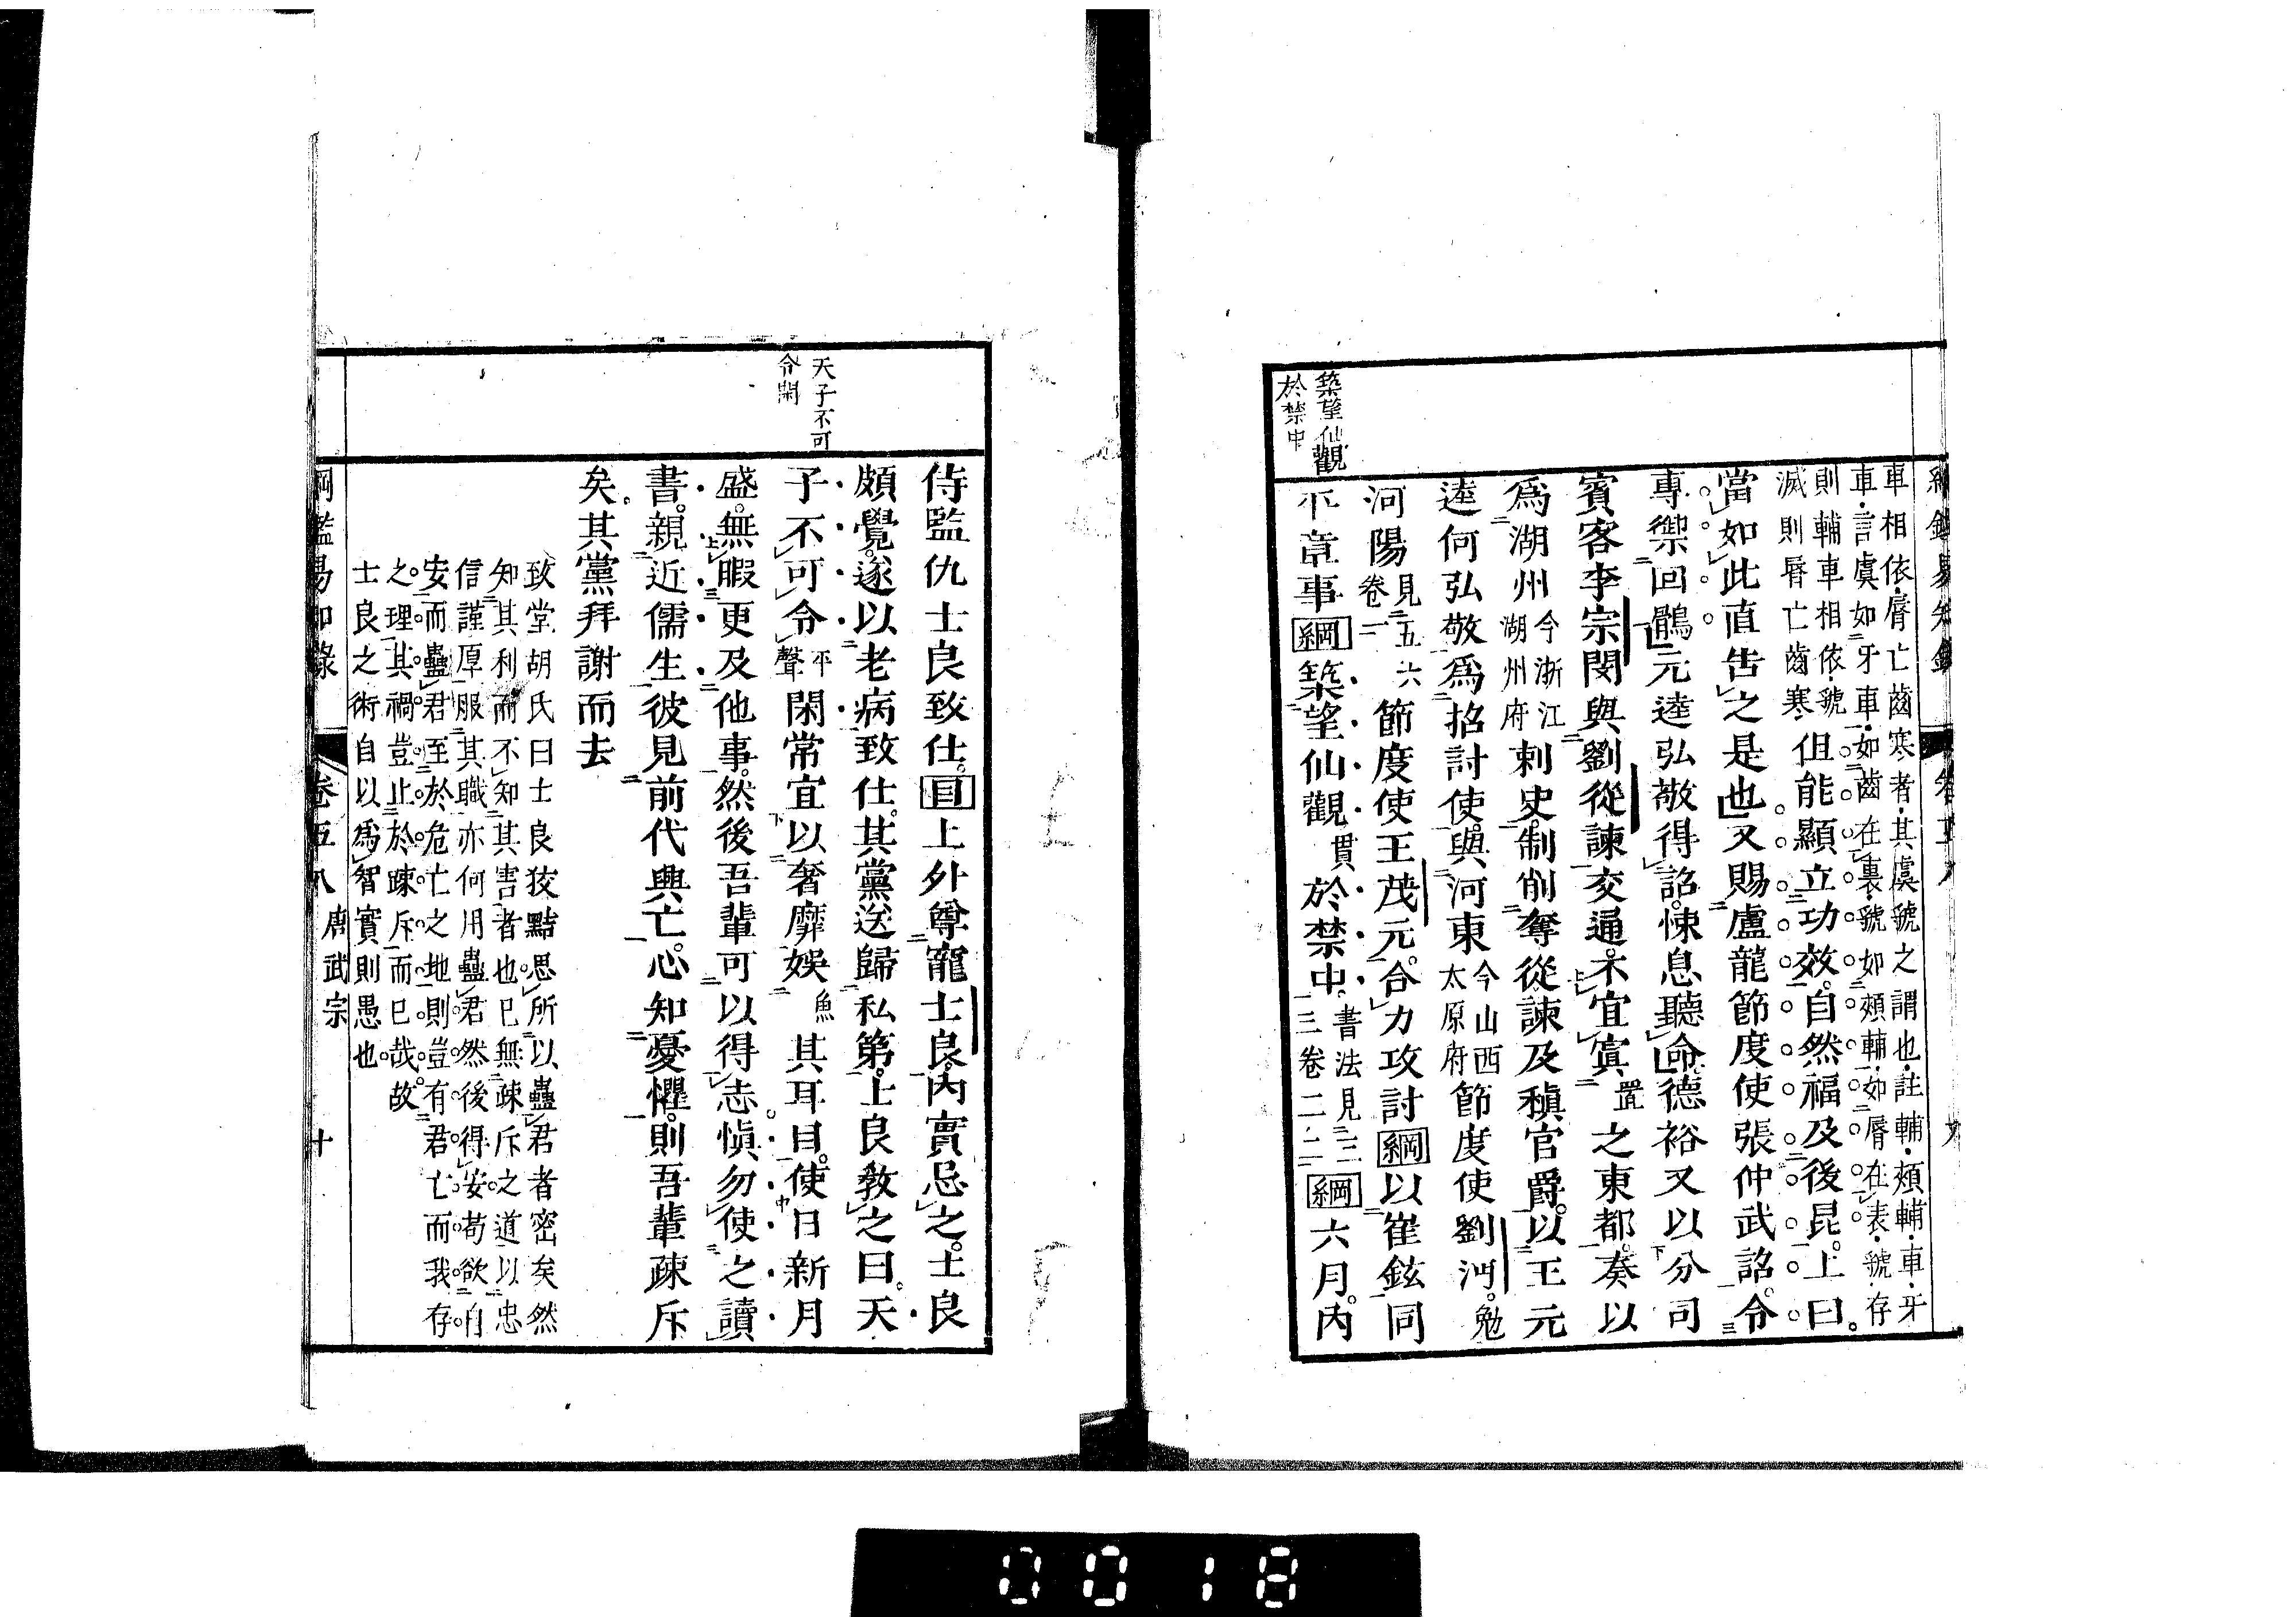 築望仙觀
於禁中
車相依脣亡齒寒者其虞虢之謂也註輔頰輔車牙
車言虞如牙車如齒在裏虢如頰輔如脣在表虢存
則輔車相依虢
滅則脣亡齒寒
但能顯立功效自然福及後昆上曰
當如此直告之是也又賜盧龍節度使張仲武詔令
專禦回鶻元逵弘敬得詔悚息聽命德裕又以分司
賓客李宗閔與劉從諫交通不宜寘置之東都奏以
爲湖州今浙江
湖州府刺史制削奪從諫及稹官爵以王元
逵何弘敬爲招討使與河東今山西
太原府節度使劉沔勉
河陽見五六
卷二節度使王茂元合力攻討綱以崔鉉同
平章事綱築望仙觀貫於禁中書法見二
三卷二二綱六月內
綱鑑易知錄 卷五八 唐武宗 十
天子不可
令閑
侍監仇士良致仕目上外尊寵士良內實忌之士良
頗覺遂以老病致仕其黨送歸私第士良教之曰天
子不可令平
聲閑常宜以奢靡娛魚其耳目使日新月
盛無暇更及他事然後吾輩可以得志愼勿使之讀
書親近儒生彼見前代興亡心知憂懼則吾輩疎斥
矣其黨拜謝而去
致堂胡氏曰士良狡黠思所以蠱君者密矣然
知其利而不知其害者也已無疎斥之道以忠
信謹厚服其職亦何用蠱君然後得安苟欲自
安而蠱君至於危亡之地則豈有君亡而我存
之理其禍豈止於疎斥而已哉故
士良之術自以爲智實則愚也
0018